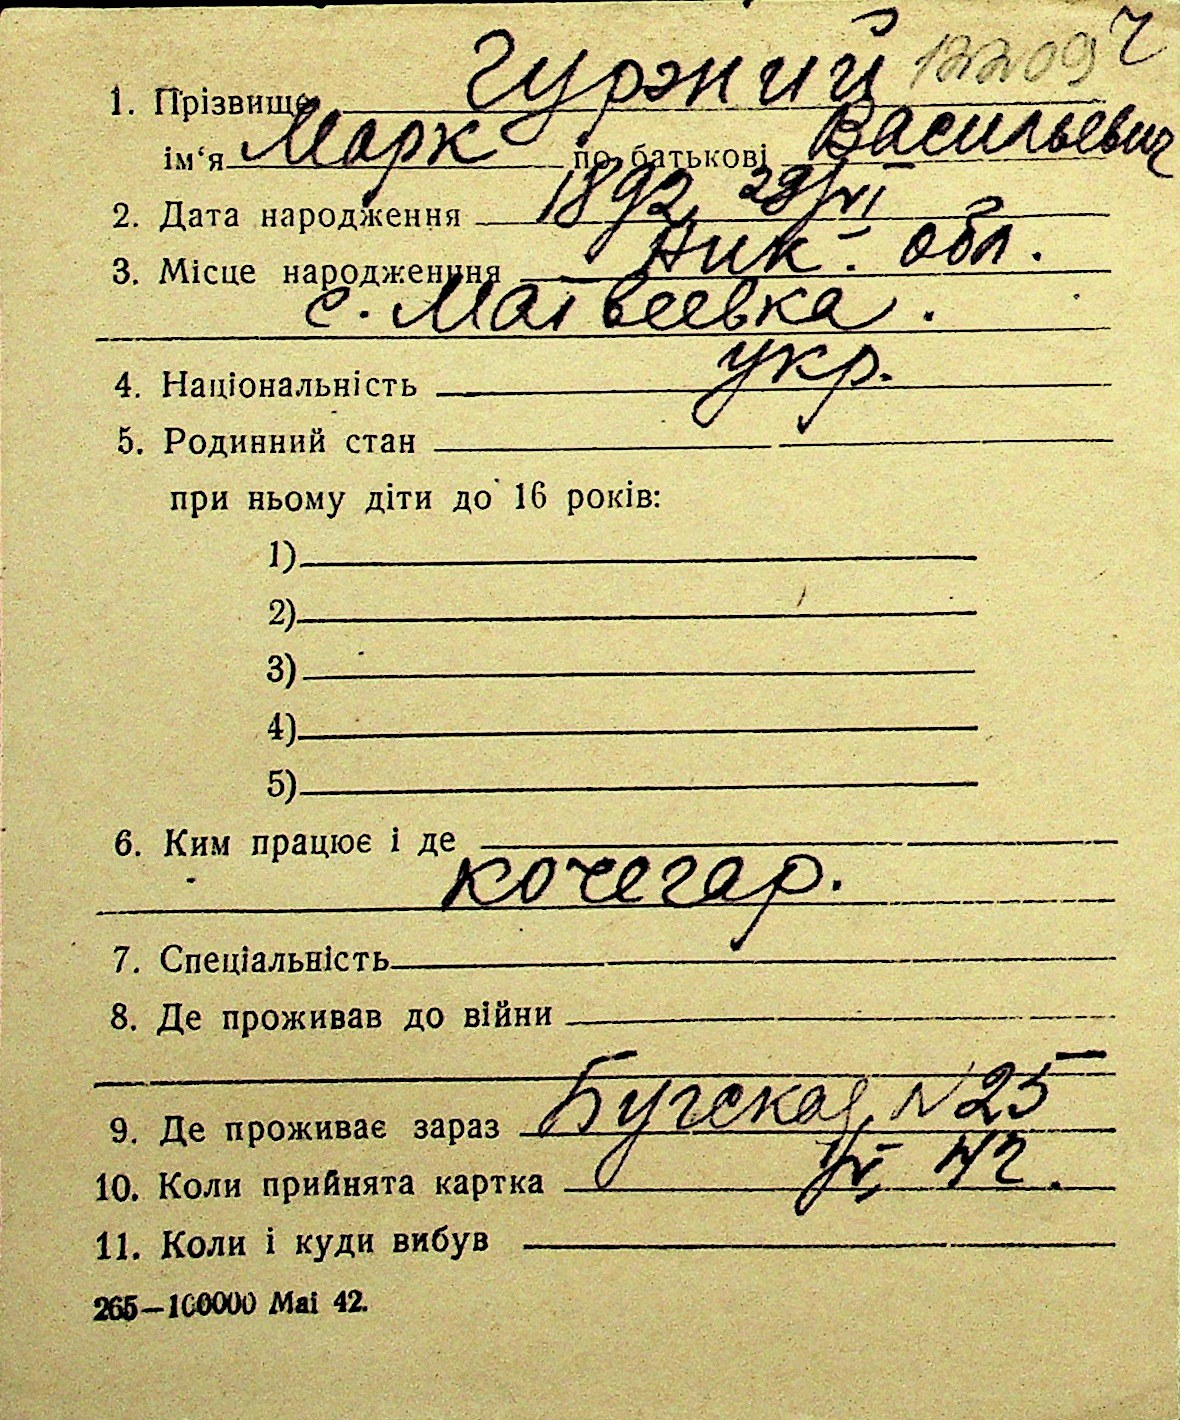 12209 ч
1. Прізвище Гуржий
ім‘я Марк по батькові Васильевич
2. Дата народження 1892, 29/VI
3. Місце народженння Ник. обл.
с. Матвеевка.
4. Національність укр.
5. Родинний стан
при ньому діти до 16 років:
1)
2)
3)
4)
5)
6. Ким працює і де
кочегар.
7. Спеціальність
8. Де проживав до війни
9. Де проживає зараз Бугская, N 25
10. Коли прийнята картка 42.
11. Коли і куди вибув
265—100000 Mai 42.